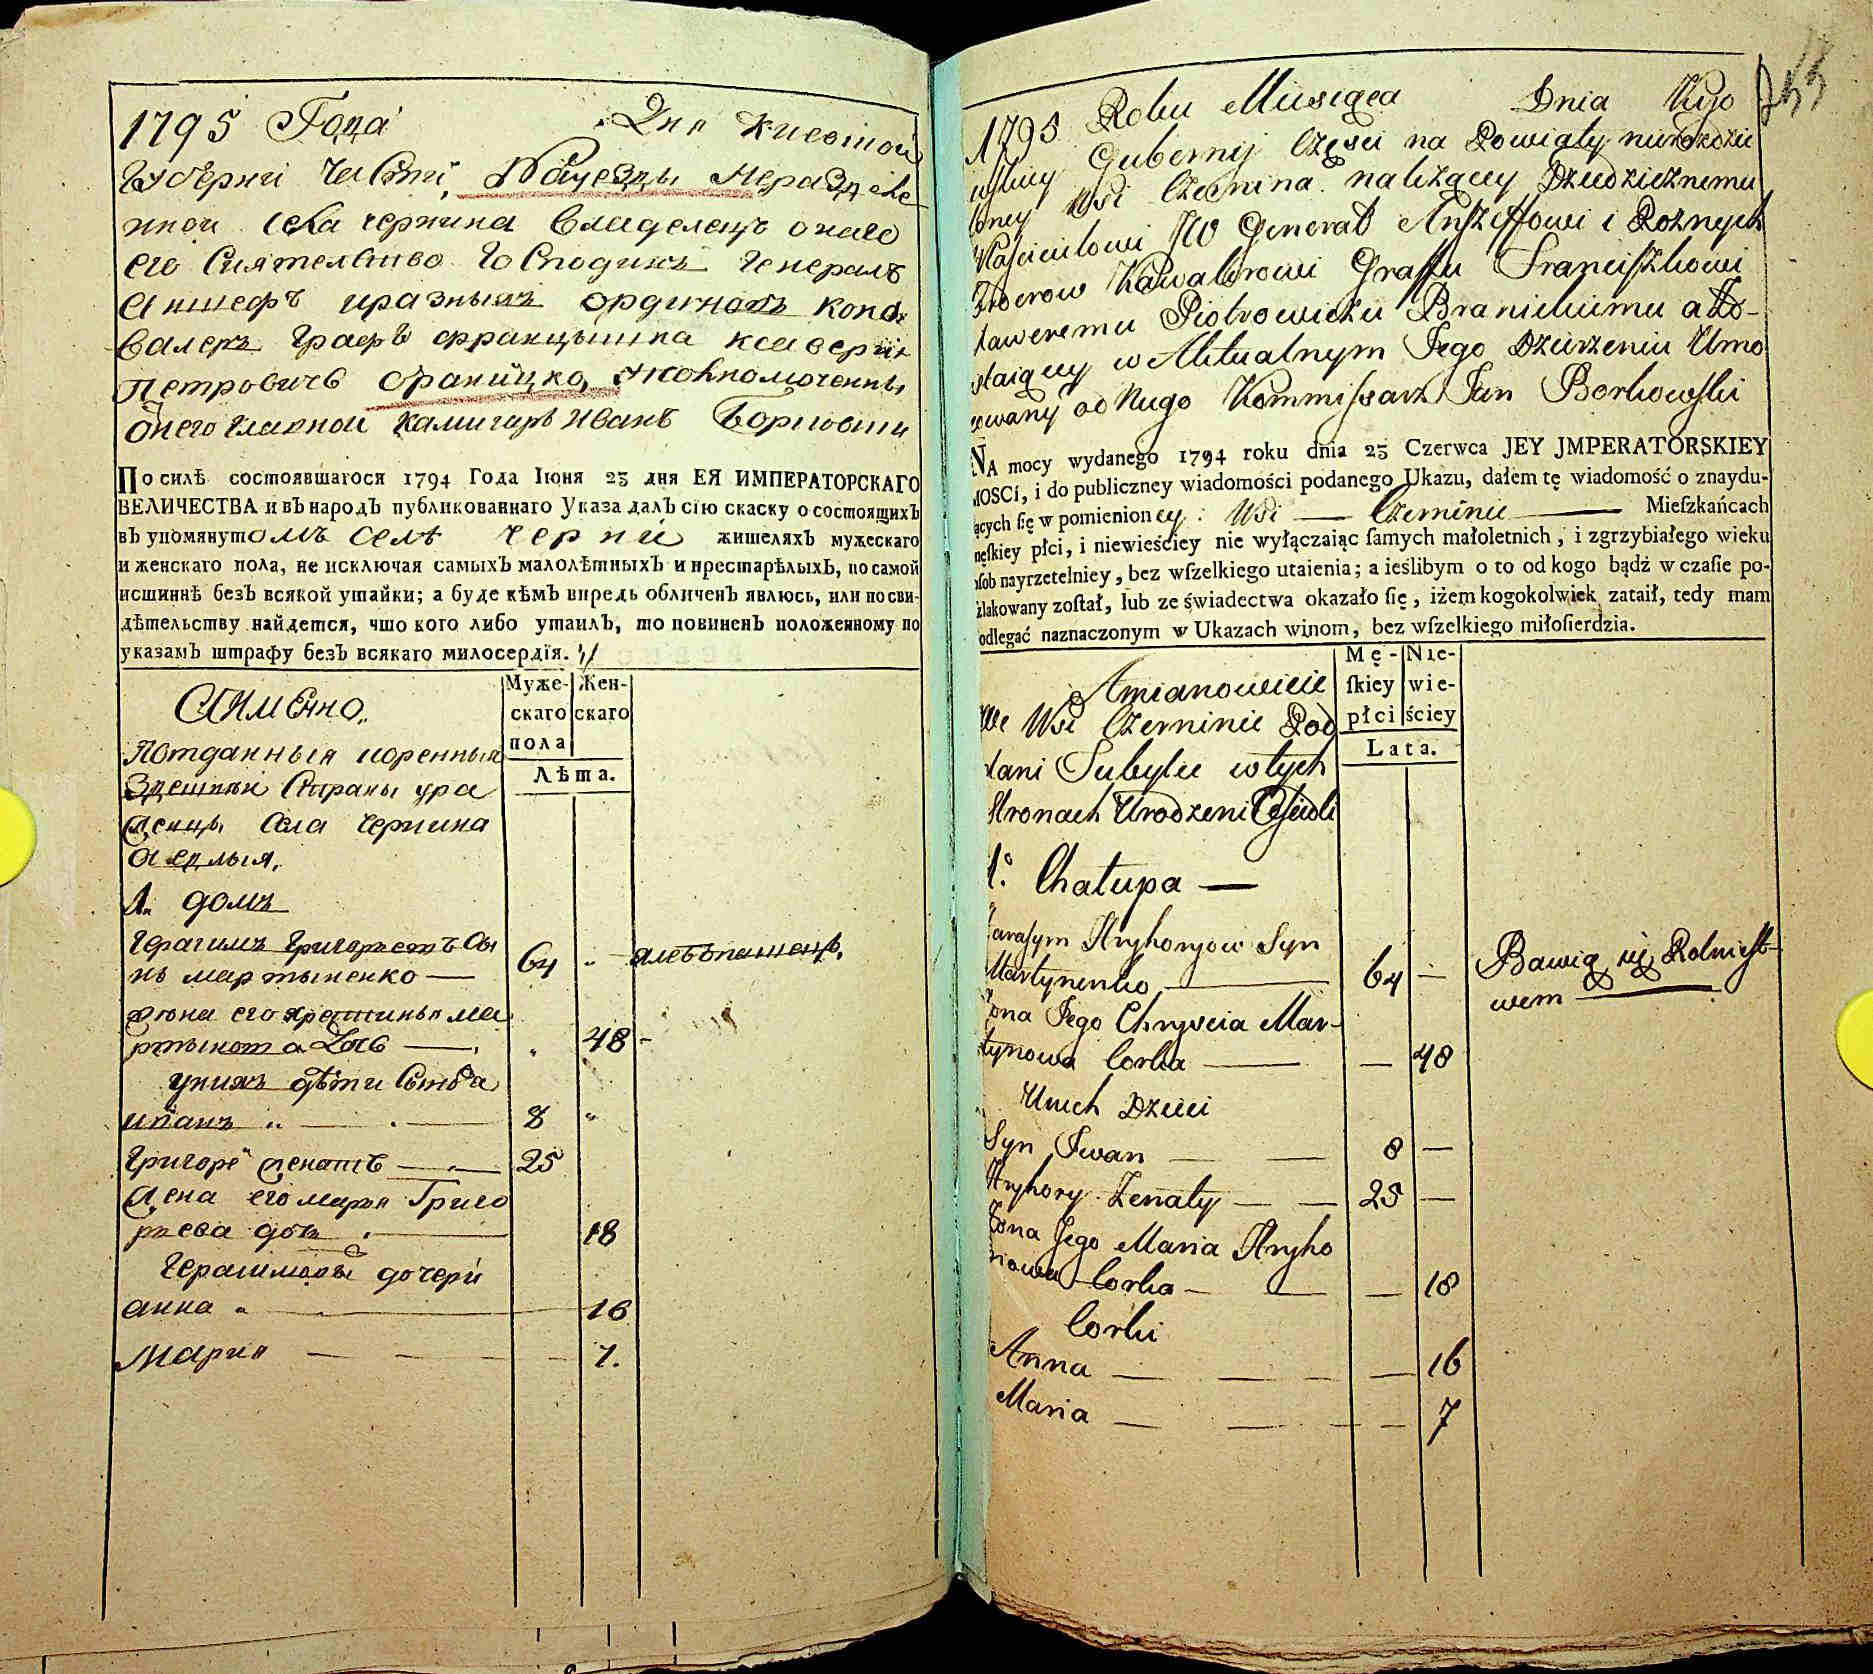 1795 Года Дня Киевской
Губерніи Части, Науезды Нераздѣле
нной Села чернина владелецъ онаго
его Сиятелство Господинъ Генералъ
Аншефъ иразныхъ ординовъ кова
валеръ Графъ францышка ксаверій
Петровичъ браницко, уполномоченны
Онего Главной камисаръ Иванъ Борковски
По силѣ состоявшагося 1794 Года Іюня 23 дня ЕЯ ИМПЕРАТОРСКАГО
ВЕЛИЧЕСТВА и въ народъ публикованнаго Указа далъ сію скаску о состоящихъ
въ упомянутомъ селѣ черни жителяхъ мужескаго
и женскаго пола, не исключая самыхъ малолѣтныхъ и престарѣлыхъ, по самой
истиннѣ безъ всякой утайки; а буде кѣмъ впредь обличенъ явлюсь, или по сви-
дѣтельству найдется, что кого либо утаилъ, то повиненъ положенному по
указамъ штрафу безъ всякаго милосердія.
Муже-скаго пола Жен-скаго
Лѣта.
Аименно
Потданныя коренныя
Здешней Страны уро
женцы Села чернина
1. домъ
Герасимъ Григорьевъ Сы
нъ мартыненко — 64
жона его христинья ма
ртынова Дочь — 48
унихъ дѣти Сынова
иванъ — 8
Григорей женатъ — 25
жена его марья Григо
рьева дочь — 18
Герасимовы дочери
анна — 16
Мария — 7.
1795 Roku Miesiąca Dnia Kijo
wskiey Gubernij Częsci na Powiaty nierozdzie
loney Wsi Czernina należącey Dziedzicznemu
Włascicielowi JW Generał Anszeffowi i Roznych
Orderow Kawalerowi Graffu Franciszkowi
Xaweremu Piotrowiczu Branickiemu a Zo-
staiącey w Aktualnym Jego Dzierżeniu Umo
cowany od Niego Kommissarz Jan Borkowski
NA mocy wydanego 1794 roku dnia 23 Czerwca JEY JMPERATORSKIEY
MOSCI, i do publiczney wiadomości podanego Ukazu, dałem tę wiadomość o znaydu-
iących ſię w pomienioney: Wsi — Czerninie — Mieſzkańcach
męſkiey płci, i niewieściey nie wyłączaiąc ſamych małoletnich, i zgrzybiałego wieku
oſob nayrzetelniey, bez wſzelkiego utaienia; a ieślibym o to od kogo bądź w czaſie po-
szlakowany zoſtał, lub ze świadectwa okazało ſię, iżem kogokolwiek zataił, tedy mam
podlegać naznaczonym w Ukazach winom, bez wſzelkiego miłoſierdzia.
Mę-ſkiey płci Nie-wie-ściey
Lata.
Amianowicie
We Wsi Czerninie Pod
dani Subylu wtych
Stronach Urodzeni Osiedli
1.° Chałupa —
Harasym Hryhoryow Syn
Martynenko — 64 — Bawią się Rolnicst-
wem
Żona Jego Chryscia Mar-
tynowa Corka — — 48
Unich Dzieci
Syn Iwan — — 8 —
Hryhory Żenaty — — 25 —
Żona Jego Maria Hryho
riowa Corka — — — 18
Corki
Anna — — — — 16
Maria — — — — 7